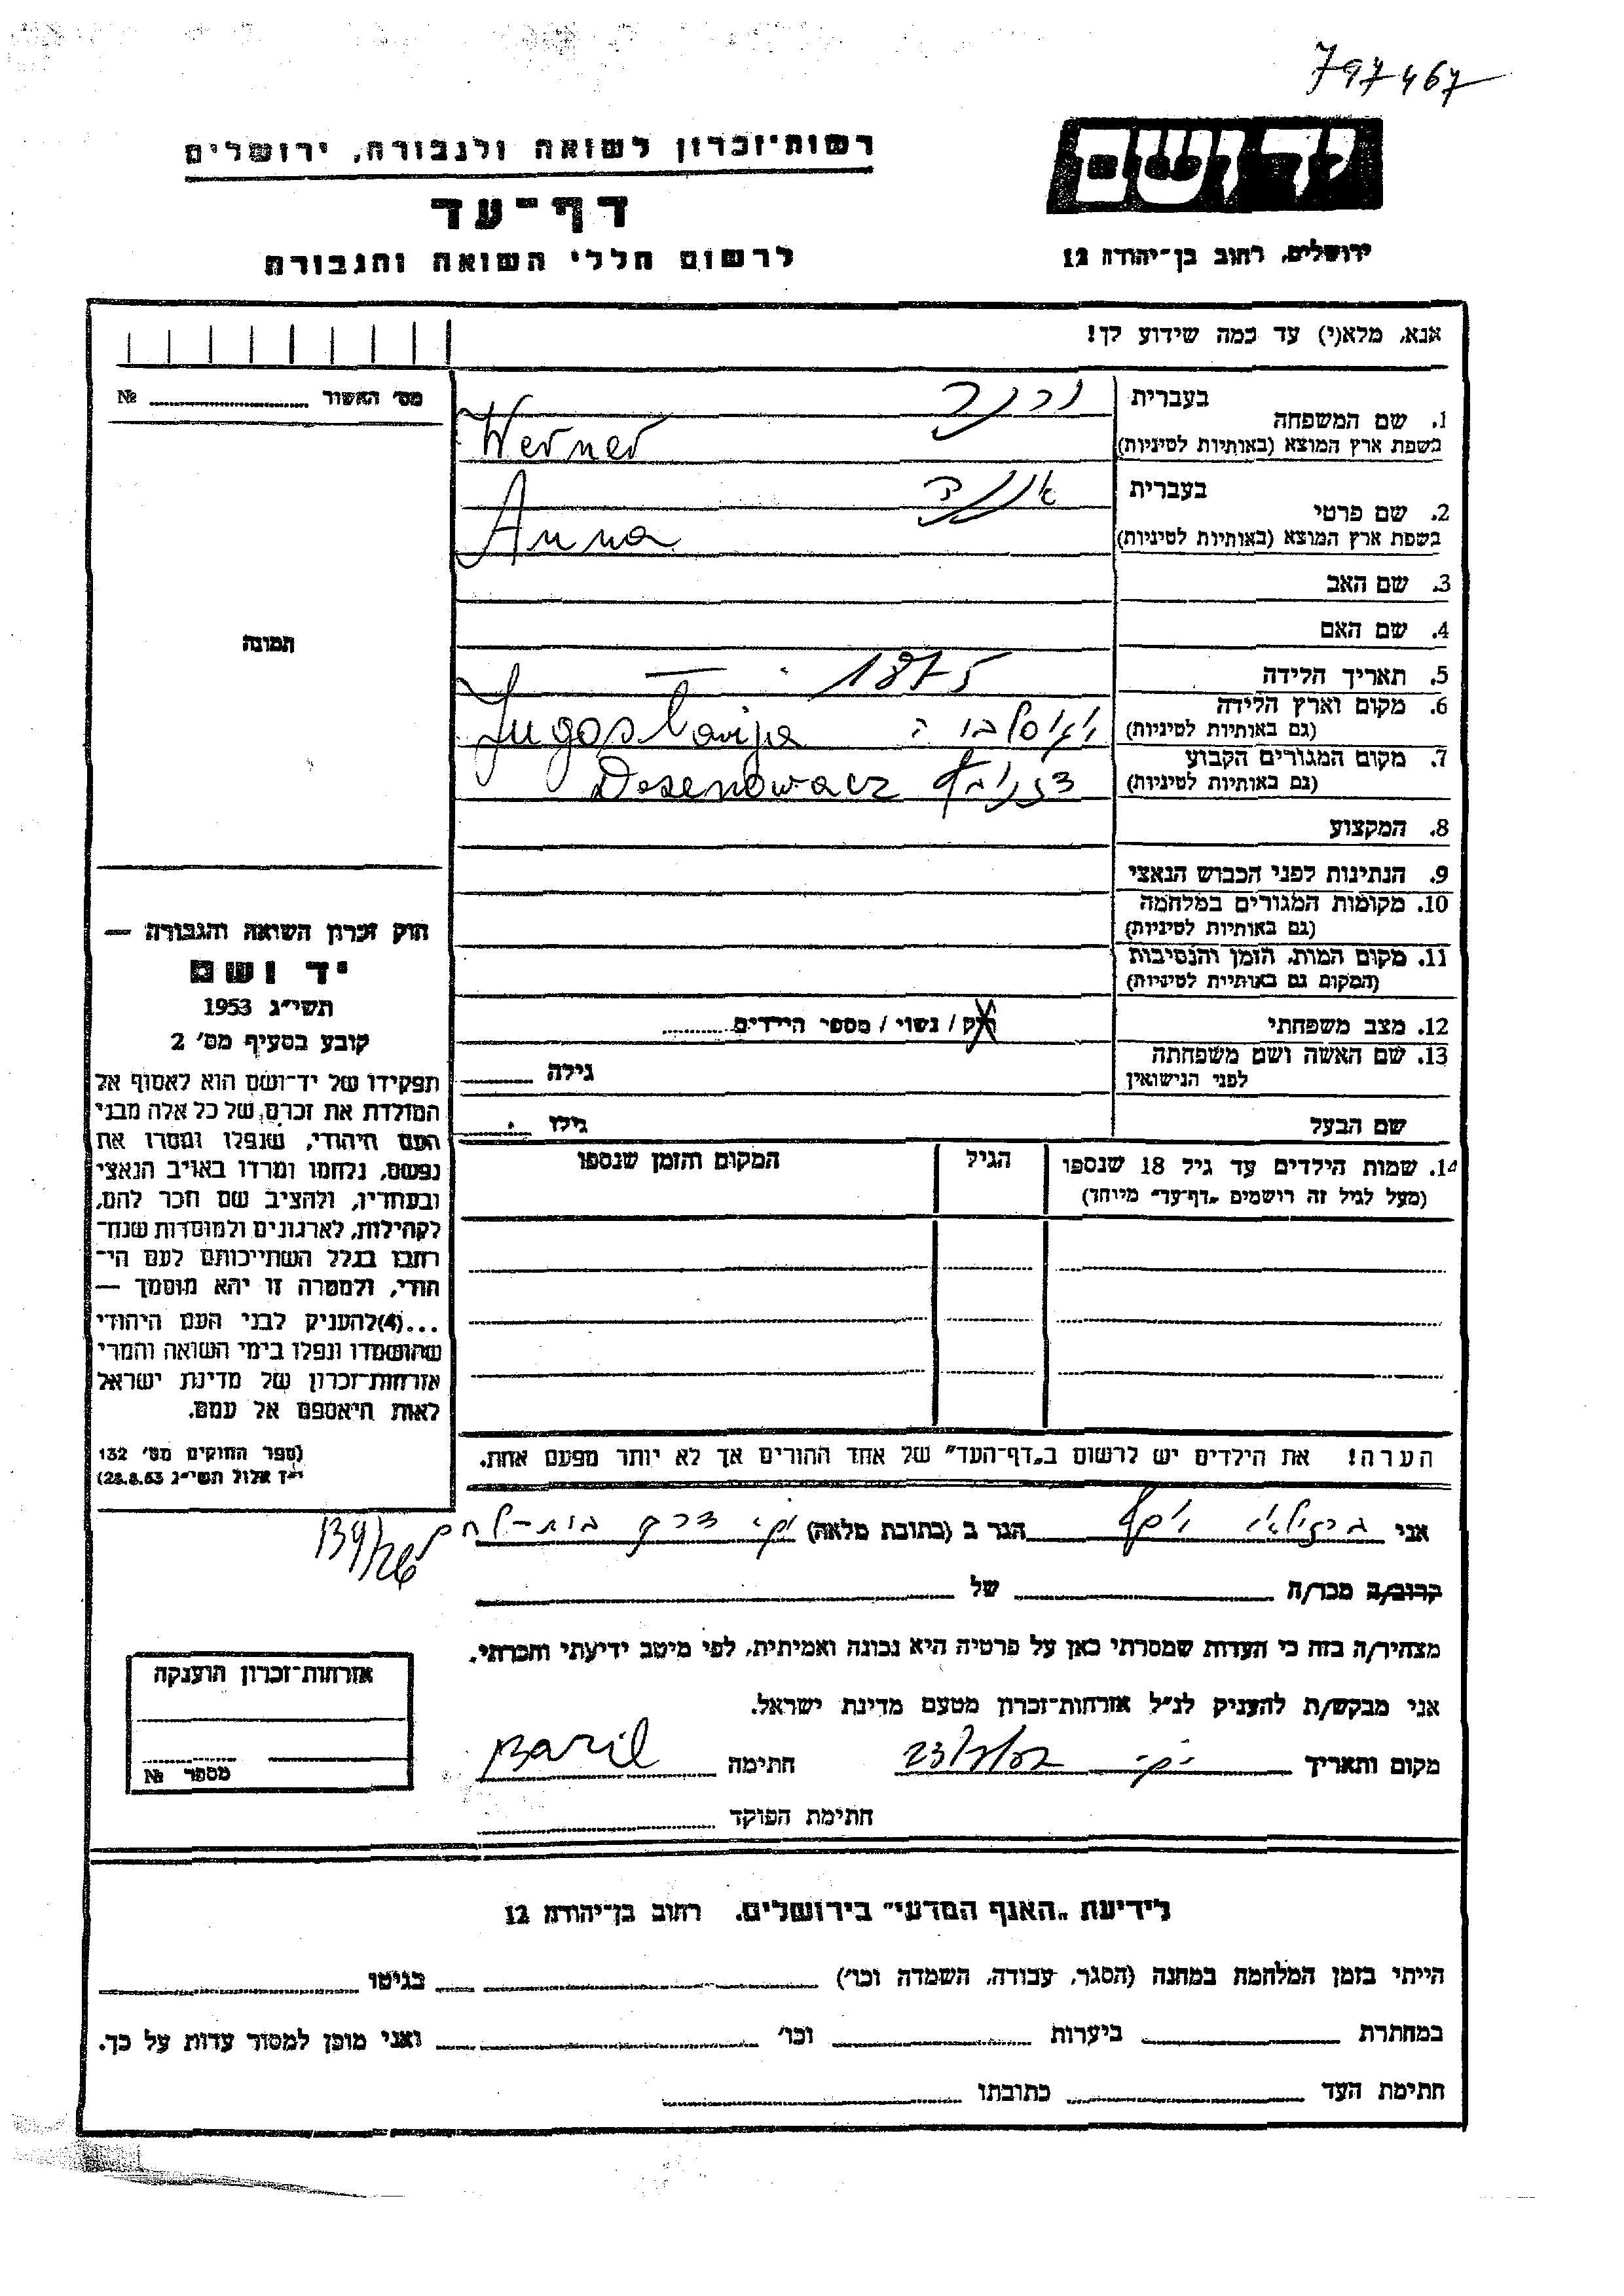 797467
רשות־זכרון לשואה ולגבורה, ירושלים
יד ושם
דף־עד
לרשום חללי השואה והגבורה
ירושלים, רחוב בן־יהודה 12
אנא, מלא(י) עד כמה שידוע לך!
מס׳ האשור № 
1. שם המשפחה
בעברית ורנר
בשפת ארץ המוצא (באותיות לטיניות) Werner
2. שם פרטי
בעברית אננה
בשפת ארץ המוצא (באותיות לטיניות) Anna
3. שם האב
4. שם האם
תמונה
5. תאריך הלידה 1875
6. מקום וארץ הלידה
(גם באותיות לטיניות) Jugoslavija
7. מקום המגורים הקבוע
(גם באותיות לטיניות) Desenowacz
8. המקצוע
9. הנתינות לפני הכבוש הנאצי
10. מקומות המגורים במלחמה
(גם באותיות לטיניות)
11. מקום המות, הזמן והנסיבות
(המקום גם באותיות לטיניות)
12. מצב משפחתי רוק / נשוי / מספר הילדים
13. שם האשה ושם משפחתה
לפני הנישואין גילה
שם הבעל גילו
14. שמות הילדים עד גיל 18 שנספו
(מעל לגיל זה רושמים „דף־עד” מיוחד)
הגיל
המקום והזמן שנספו
חוק זכרון השואה והגבורה —
יד ושם
תשי״ג 1953
קובע בסעיף מס׳ 2
תפקידו של יד־ושם הוא לאסוף אל
המולדת את זכרם של כל אלה מבני
העם היהודי, שנפלו ומסרו את
נפשם, נלחמו ומרדו באויב הנאצי
ובעוזריו, ולהציב שם וזכר להם,
לקהילות, לארגונים ולמוסדות שנח־
רבו בגלל השתייכותם לעם הי־
הודי, ולמטרה זו יהא מוסמך —
...(4) להעניק לבני העם היהודי
שהושמדו ונפלו בימי השואה והמרי
אזרחות־זכרון של מדינת ישראל
לאות היאספם אל עמם.
(ספר החוקים מס׳ 132
י״ז אלול תשי״ג 28.8.53)
הערה! את הילדים יש לרשום ב„דף־העד” של אחד ההורים אך לא יותר מפעם אחת.
אני ברזילאי יוסף הגר ב (כתובת מלאה) דרך בית־לחם
139/26
קרוב/ה מכר/ה של
מצהיר/ה בזה כי העדות שמסרתי כאן על פרטיה היא נכונה ואמיתית, לפי מיטב ידיעתי והכרתי.
אני מבקש/ת להעניק לנ״ל אזרחות־זכרון מטעם מדינת ישראל.
מקום ותאריך חתימה Bazil
חתימת הפוקד
אזרחות־זכרון הוענקה
מספר №
לידיעת „האגף המדעי” בירושלים. רחוב בן־יהודה 12
הייתי בזמן המלחמה במחנה (הסגר, עבודה, השמדה וכו׳) בגיטו
במחתרת ביערות וכו׳ ואני מוכן למסור עדות על כך.
חתימת העד כתובתו